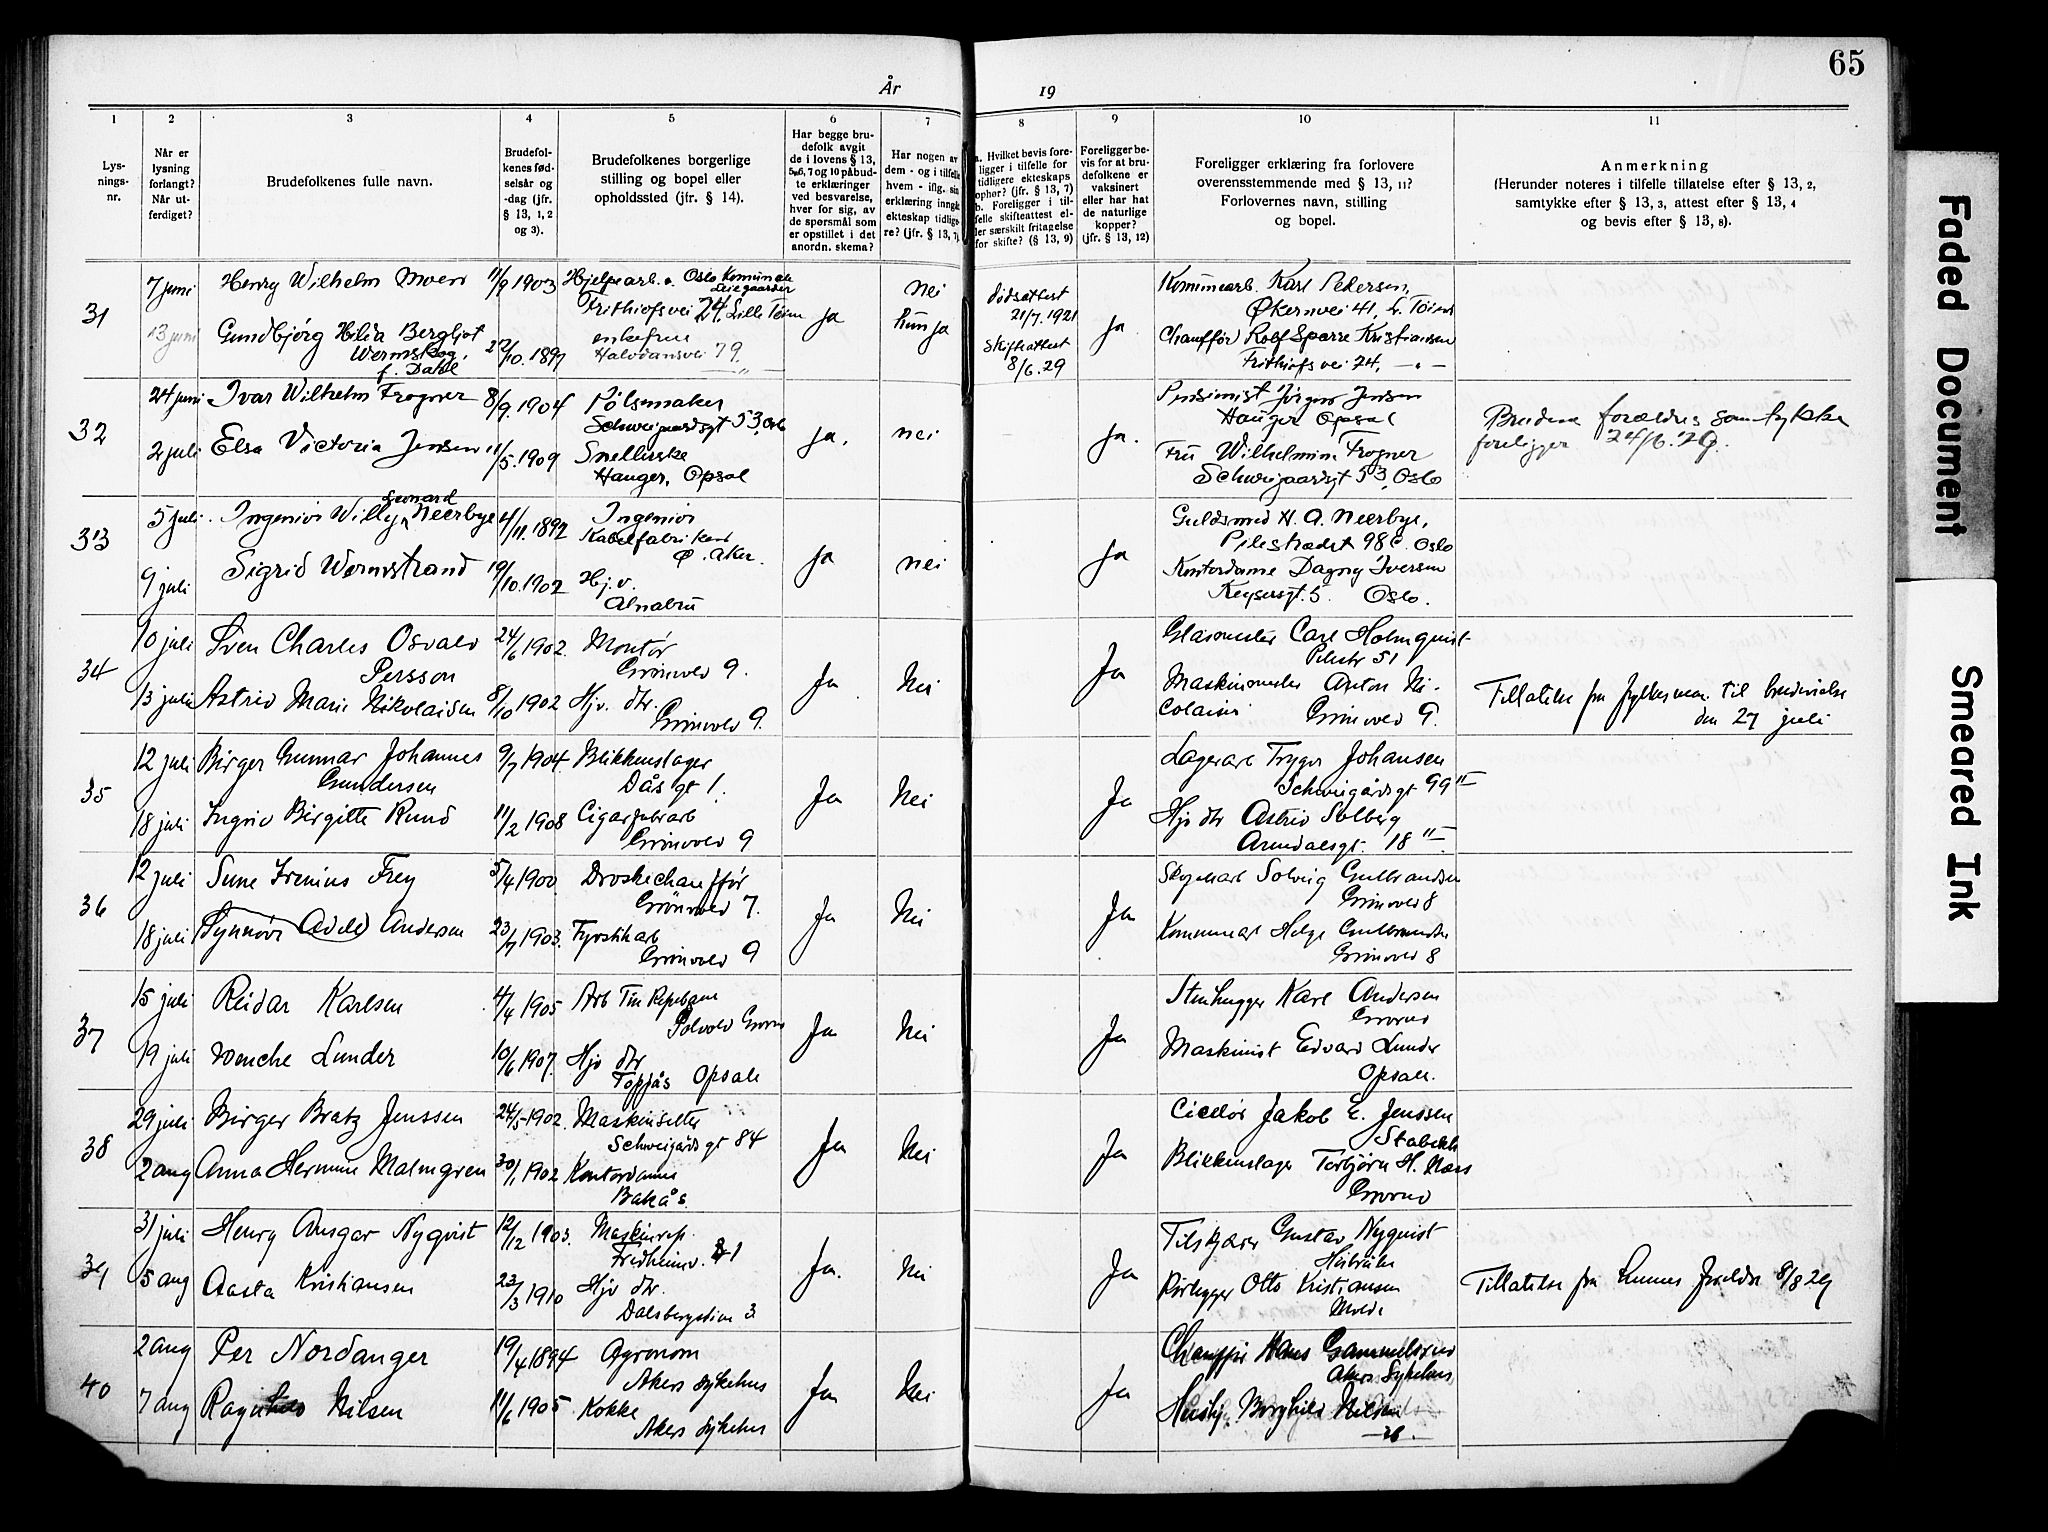 65
År
19
1
2
3
4
5
6
7
8
9
10
11
Lys-
nings-
nr.
Når er
lysning
forlangt?
Når ut-
ferdiget?
Brudefolkenes fulle navn.
Brudefol-
kenes fød-
selsår og
-dag (jfr.
§ 13, 1, 2
og 3).
Brudefolkenes borgerlige
stilling og bopel eller
opholdssted (jfr. § 14).
Har begge bru-
defolk avgit
de i lovens § 13,
5, 6, 7 og 10 påbud-
te erklæringer
ved besvarelse,
hver for sig, av
de spørsmål som
er opstillet i det
anordn. skema?
Har nogen av
dem - og i tilfelle
hvem - iflg. sin
erklæring inngått
ekteskap tidlige-
re? (jfr. § 13, 7)
a. Hvilket bevis fore-
ligger i tilfelle for
tidligere ekteskaps
ophør? (jfr. § 13, 7)
b. Foreligger i til-
felle skifteattest el-
ler særskilt fritagelse
for skifte? (§ 13, 9)
Foreligger be-
vis for at bru-
defolkene er
vaksinert
eller har hat
de naturlige
kopper?
(jfr. § 13, 12)
Foreligger erklæring fra forlovere
overensstemmende med § 13, 11?
Forlovernes navn, stilling
og bopel.
Anmerkning
(Herunder noteres i tilfelle tillatelse efter § 13, 2,
samtykke efter § 13, 3, attest efter § 13, 4
og bevis efter § 13, 8).
31
7 juni
13 juni
Henry Wilhelm Moen
Gundbjörg Hilda Bergljot
Wermskog,
f. Dahl
11/9 1903
22/10. 1897
Hjelpearb. v. Oslo Komunale
Leiegaarder
Frithiofsvei 24, Lille Tøien
enkefrue
Halvdansvei 79.
ja
nei
hun ja
dødsattest
21/7. 1921
Skifteattest
8/6. 29
ja
Komunearb. Karl Pedersen,
Økernvei 41, L. Tøien
Chauffør Rolf Sparre Kristiansen
Frithiofsvei 24, — „ —
32
24 juni
2 juli
Ivar Wilhelm Frogner
Elsa Victoria Jensen
8/9. 1904
11/5. 1909
Pølsemaker
Schweigaardsgt 53, Oslo
Snelliske
Hauger, Opsal
ja.
nei
ja.
Pensionist Jörgen Jensen
Hauger Opsal
Fru Wilhelmine Frogner
Schweigaardsgt 53, Oslo
Brudens forældres samtykke
foreligger 24/6. 29.
33
5 juli
9 juli
Ingeniör Willy Leonard Neerbye
Sigrid Wormstrand
4/11. 1892
19/10. 1902
Ingeniør
Kabelfabriken
Ø. Aker.
Hj. v.
Alnabru
ja
nei
ja
Guldsmed H. A. Neerbye,
Pilestrædet 98 C. Oslo
Kontordame Dagny Iversen
Keysersgt. 5 Oslo.
34
10 juli
13 juli
Sven Charles Osvald
Persson
Astrid Marie Nikolaisen
24/6 1902.
8/10 1902
Montør
Grönvold 9.
Hjv. dtr.
Grönvold 9.
Ja
Nei
Ja
Glasmester Carl Holmqvist
Pilestr 51
Maskinmester Anton Ni-
colaisen Grönvold 9.
Tillatelse fra fylkesman. til brudevielse
den 27 juli
35
12 juli
18 juli
Birger Gunnar Johannes
Gundersen
Ingrid Birgitte Rund
9/7 1904.
11/2 1908
Blikkenslager
Dåsgt 1.
Cigarfabrarb
Grönvold 9
Ja
Nei
Ja
Lagerarb Trygve Johansen
Schweigårdsgt 99 II
Hjv dtr Astrid Solberg
Arendalsgt. 18 II.
36
12 juli
18 juli
Sune Irenius Frey
Synnöve Adele Andersen
5/4 1900
23/7 1903.
Droskechauffør
Grönvold 7.
Fyrstikarb
Grönvold 9
Ja
Nei
Ja
Solveig Gulbrandsen
Grönvold 8
Kommunearb Helge Gulbrandsen
Grönvold 8
37
15 juli
19 juli
Reidar Karlsen
Wenche Lunder
4/4 1905
10/6 1907.
Arb Tin Repebane
Grorud
Hjv dtr
Topåås Opsal
Ja
Nei
Ja
Stenhugger Karl Andersen
Grorud
Maskinist Edvard Lunder
Opsal.
38
29 juli
2 aug
Birger Bratz Jenssen
Anna Hermine Malmgren
24/5 1902.
30/1 1902
Maskinsetter
Schweigårdsgt 84
Kontordame
Bakås.
Ja
Nei
Ja
Ciselör Jakob E. Jenssen
Stabekk
Blikkenslager Torbjørn H. Næss
Grorud
39
31 juli
5 aug
Henry Ansgar Nyqvist
Aasta Kristiansen
12/12 1903.
23/3 1910
Maskinrep.
Fredheimv. 21
Hjv dtr.
Dalsbergstien 3
Ja.
Nei
Ja
Tilskjærer Gustav Nyqvist
Rørlegger Otto Kristiansen
Tillatelse fra hennes foreldre 8/8 29
40
2 aug
7 aug
Per Nordanger
Ragnhild Nilsen
19/4 1894
11/6 1905
Agronom
Akers sykehus
Kokke
Akers sykehus
Ja
Nei
Ja
Chauffør Hans Gammelsrud
Akers Sykehus
Hushj. Borghild Nilsen
Faded Document
Smeared Ink